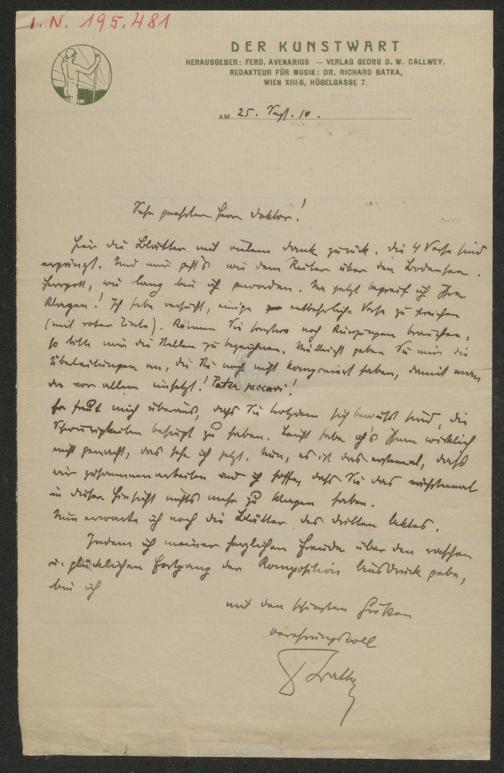 I.N. 195.481
DER KUNSTWART
HERAUSGEBER: FERD. AVENARIUS — VERLAG GEORG D. W. CALLWEY.
REDAKTEUR FÜR MUSIK: DR. RICHARD BATKA,
WIEN XIII/6, HÜGELGASSE 7.
AM 25. Sept. 10.
Sehr geehrter Herr Doktor!
Hier die Blätter mit vielem Dank zurück. Die 4 Verse sind
ergänzt. Und nun geht's wie dem Reiter über den Bodensee.
Herrgott, wie lang bin ich geworden. Na jetzt begreif ich Ihre
Klagen! Ich habe versucht, einige entbehrliche Verse zu streichen
(mit roter Tinte). Können Sie sonstwo noch Kürzungen brauchen,
so bitte mir die Stellen zu bezeichnen. Vielleicht geben Sie mir die
Überleitungen an, die Sie noch nicht komponiert haben, damit man
da vor allem einsetzt! Pater peccavi!
Es freut mich überaus, dass Sie trotzdem sich bewusst sind, die
Schwierigkeiten besiegt zu haben. Leicht habe ich's Ihnen wirklich
nicht gemacht, das sehe ich jetzt. Nun, es ist das erstemal, dass
wir zusammenarbeiten und ich hoffe, dass Sie das nächstemal
in dieser Hinsicht nichts mehr zu klagen haben.
Nun erwarte ich noch die Blätter des dritten Aktes.
Indem ich meiner herzlichen Freude über den raschen
u. glücklichen Fortgang der Komposition Ausdruck gebe,
bin ich
mit den schönsten Grüßen
verehrungsvoll
Batka